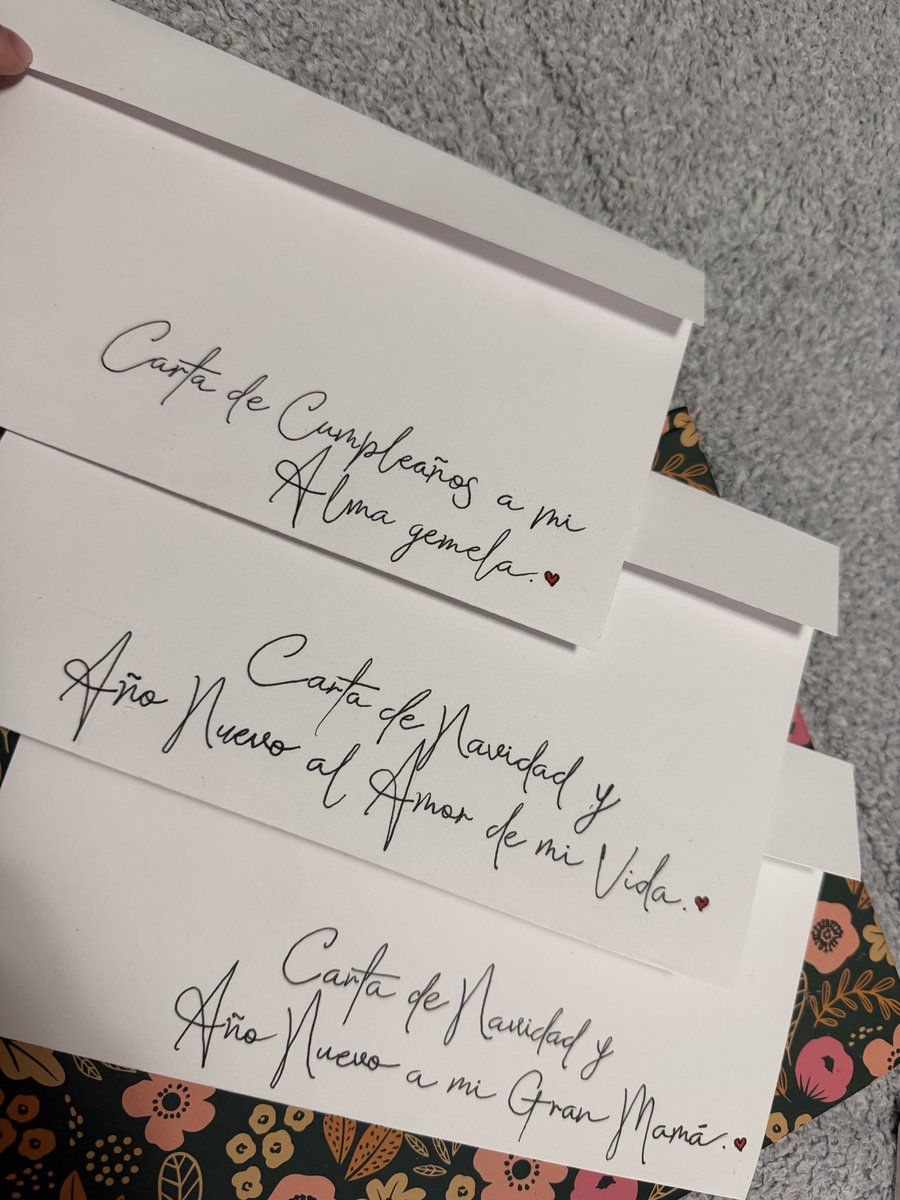 Carta de Cumpleaños a mi
Alma gemela.
Carta de Navidad y
Año Nuevo al Amor de mi Vida.
Carta de Navidad y
Año Nuevo a mi Gran Mamá.